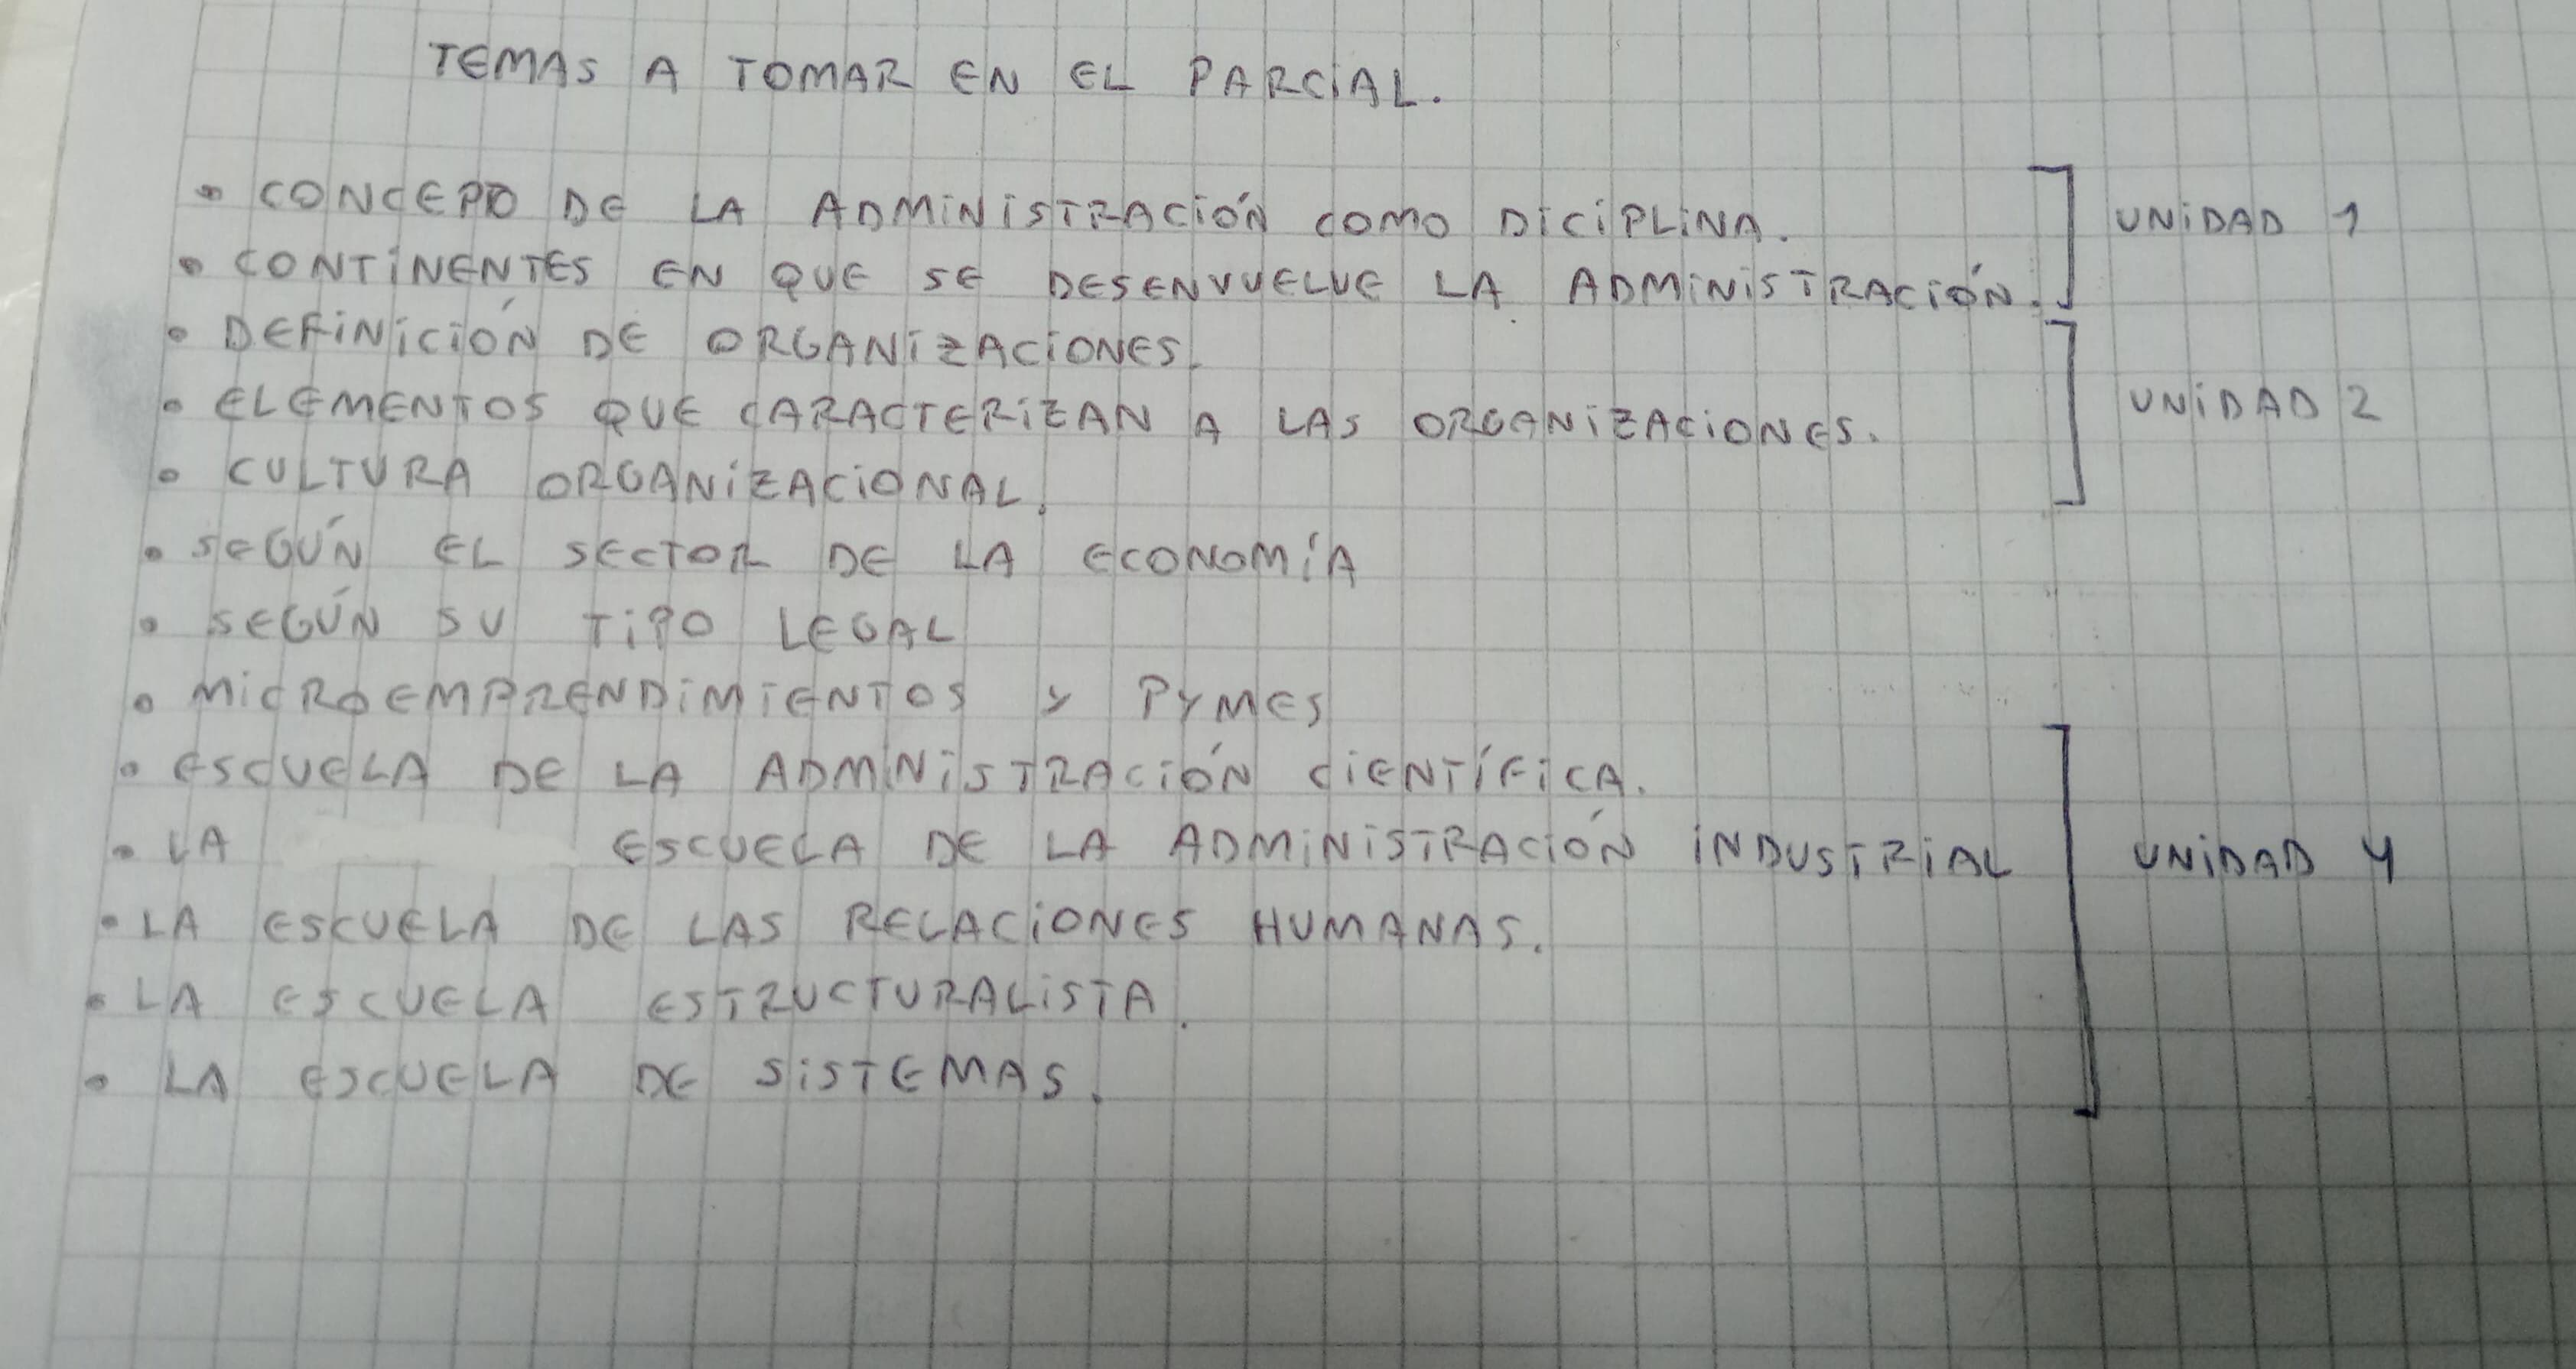 TEMAS A TOMAR EN EL PARCIAL.
• CONCEPTO DE LA ADMINISTRACIÓN COMO DICIPLINA.
UNIDAD 1
• CONTINENTES EN QUE SE DESENVUELVE LA ADMINISTRACIÓN.
• DEFINICIÓN DE ORGANIZACIONES.
• ELEMENTOS QUE CARACTERIZAN A LAS ORGANIZACIONES.
UNIDAD 2
• CULTURA ORGANIZACIONAL.
• SEGÚN EL SECTOR DE LA ECONOMÍA
• SEGÚN SU TIPO LEGAL
• MICROEMPRENDIMIENTOS Y PYMES
• ESCUELA DE LA ADMINISTRACIÓN CIENTÍFICA.
• LA ESCUELA DE LA ADMINISTRACIÓN INDUSTRIAL
UNIDAD 4
• LA ESCUELA DE LAS RELACIONES HUMANAS.
• LA ESCUELA ESTRUCTURALISTA.
• LA ESCUELA DE SISTEMAS.